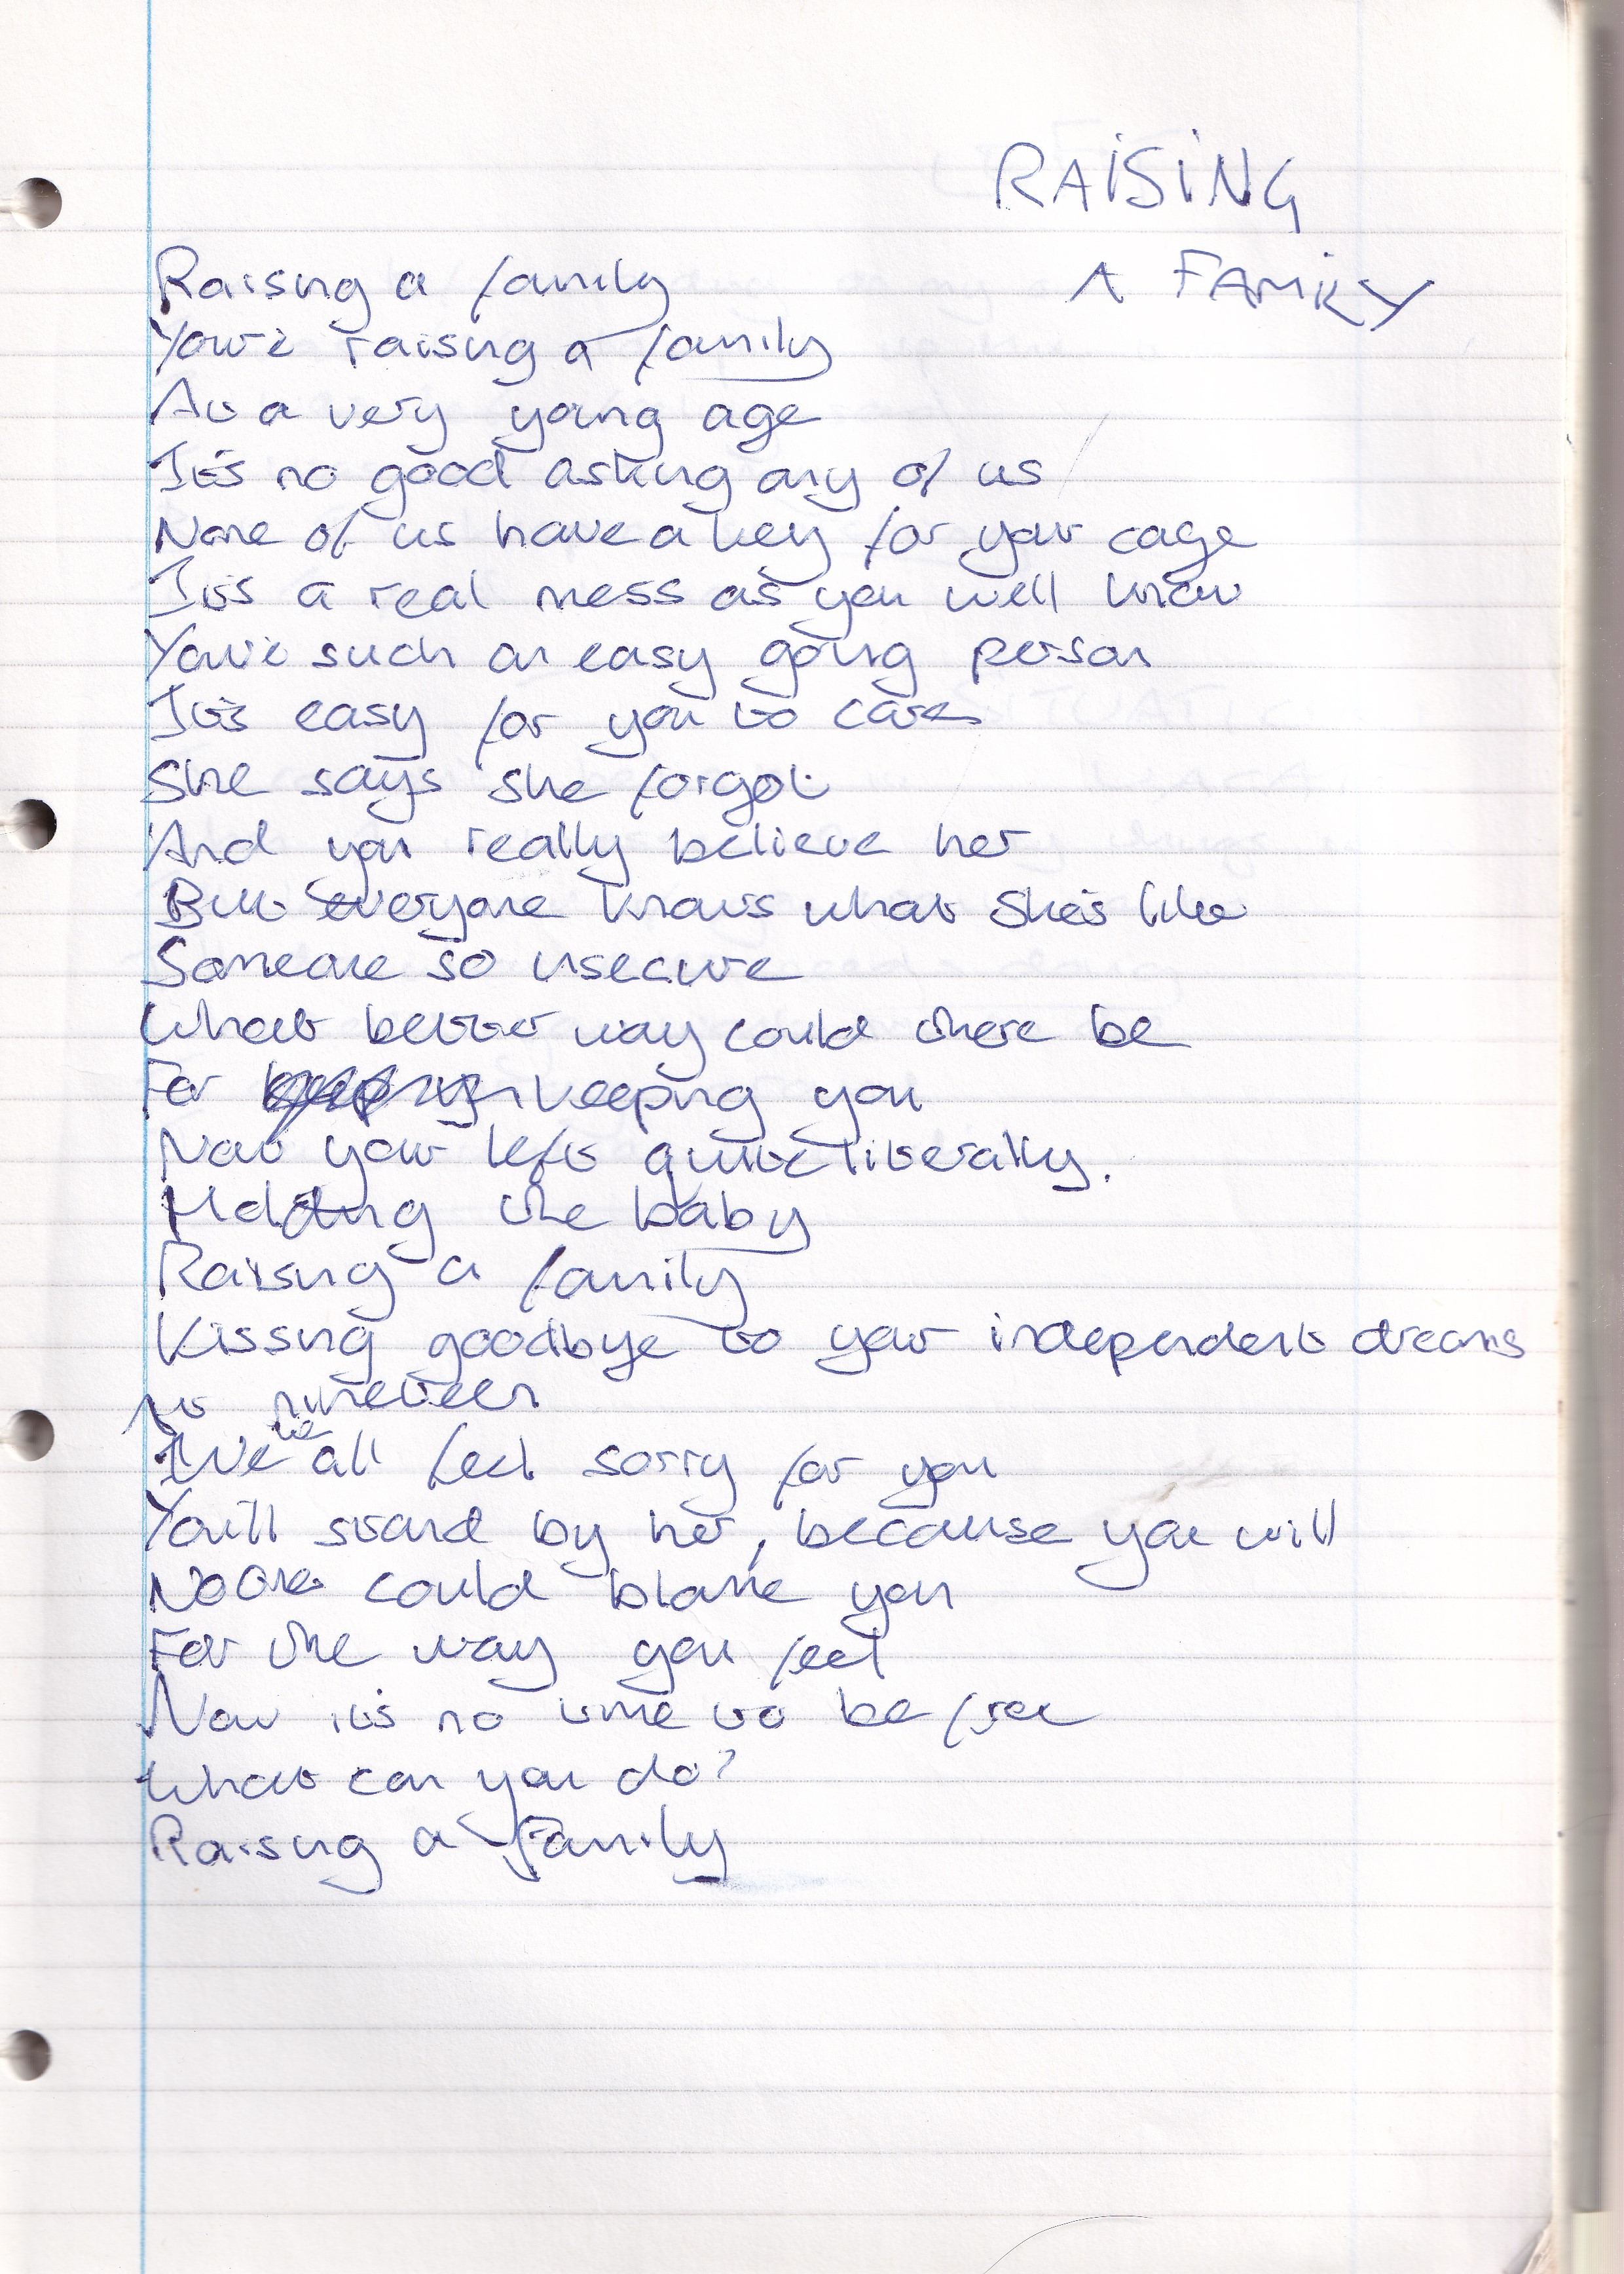 RAISING
A FAMILY
Raising a family
You're raising a family
At a very young age
It's no good asking any of us
None of us have a key for your cage
It's a real mess as you well know
You're such an easy going person
It's easy for you to care
She says she forgot
And you really believe her
But everyone knows what she's like
Someone so insecure
What better way could there be
For keeping you
Now your left quite literally.
Holding the baby
Raising a family
Kissing goodbye to your independent dreams
At nineteen
we
all feel sorry for you
You'll stand by her, because you will
No one could blame you
For the way you feel
Now it's no time to be free
What can you do?
Raising a Family